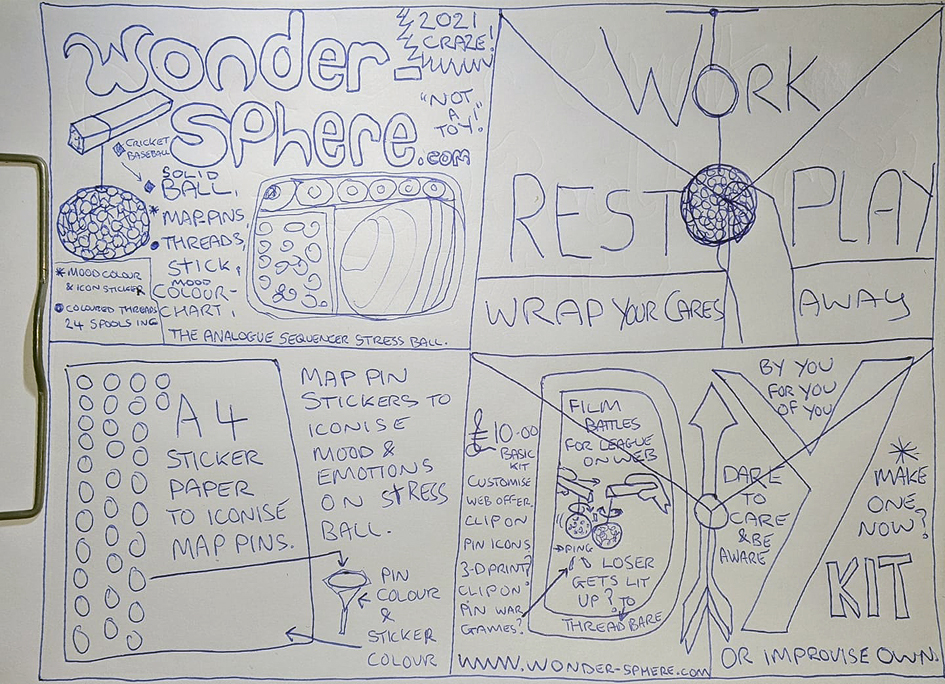 Wonder-
Sphere.com
2021
CRAZE!
WWW
"NOT
A
TOY!"
CRICKET
BASEBALL
SOLID
BALL.
* MAPPINS
THREADS,
STICK,
MOOD
COLOUR-
CHART.
* MOOD COLOUR
& ICON STICKER
COLOURED THREADS
24 SPOOLS ING
THE ANALOGUE SEQUENCER STRESS BALL.
WORK
REST PLAY
WRAP YOUR CARES AWAY
A4
STICKER
PAPER
TO ICONISE
MAP PINS.
MAP PIN
STICKERS TO
ICONISE
MOOD &
EMOTIONS
ON STRESS
BALL.
PIN
COLOUR
&
STICKER
COLOUR
£10.00
BASIC
KIT
CUSTOMISE
WEB OFFER.
CLIP ON
PIN ICONS
3-D PRINT?
CLIP ON?
PIN WAR
GAMES?
FILM
BATTLES
FOR LEAGUE
ON WEB
PING
LOSER
GETS LIT
UP? TO
THREADBARE
WWW.WONDER-SPHERE.COM
BY YOU
FOR YOU
OF YOU
DARE
TO
CARE
& BE
AWARE
DIY
*
MAKE
ONE,
NOW?
KIT
OR IMPROVISE OWN.